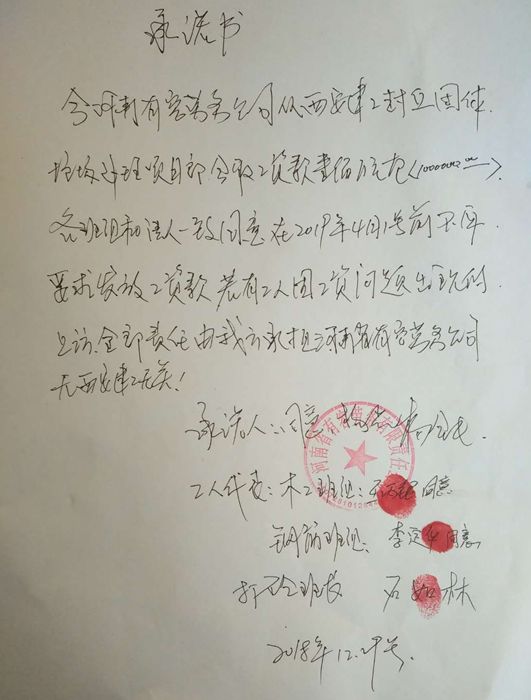 承诺书
今河南有容劳务公司从西安建工封丘固体
垃圾处理项目部领取工资款壹佰万元
各班组和法人一致同意在2019年4月1号前不再
要求发放工资款 若有工人因工资问题出现的
上访,全部责任由我方承担河南省有容劳务公司
与西安建工无关!
承诺人:同意
河南省有容 有限责任
工人代表:木工班组: 同意
钢筋班组: 李 同意
打砼班组 石如林
2018年12.29号.